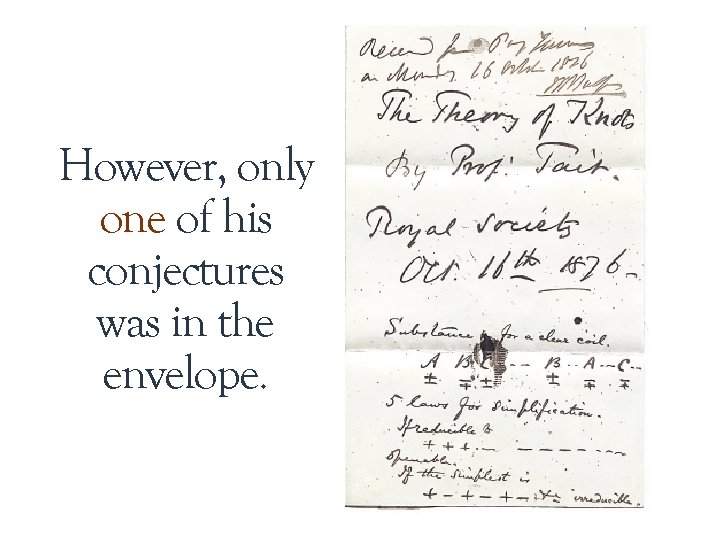 However, only
one of his
conjectures
was in the
envelope.
16 Octr. 1876
The Theory of Knots
By Prof. Tait.
Royal Society
Oct. 16th 1876 -
Substance for a clear coil.
A B C - - B - - A - - C - -
± ∓ ± ± ∓ ∓
5 laws for simplification.
If reducible &
+ + + - - - - - - - - -
openable.
If the simplest is
+ - + - + - irreducible.